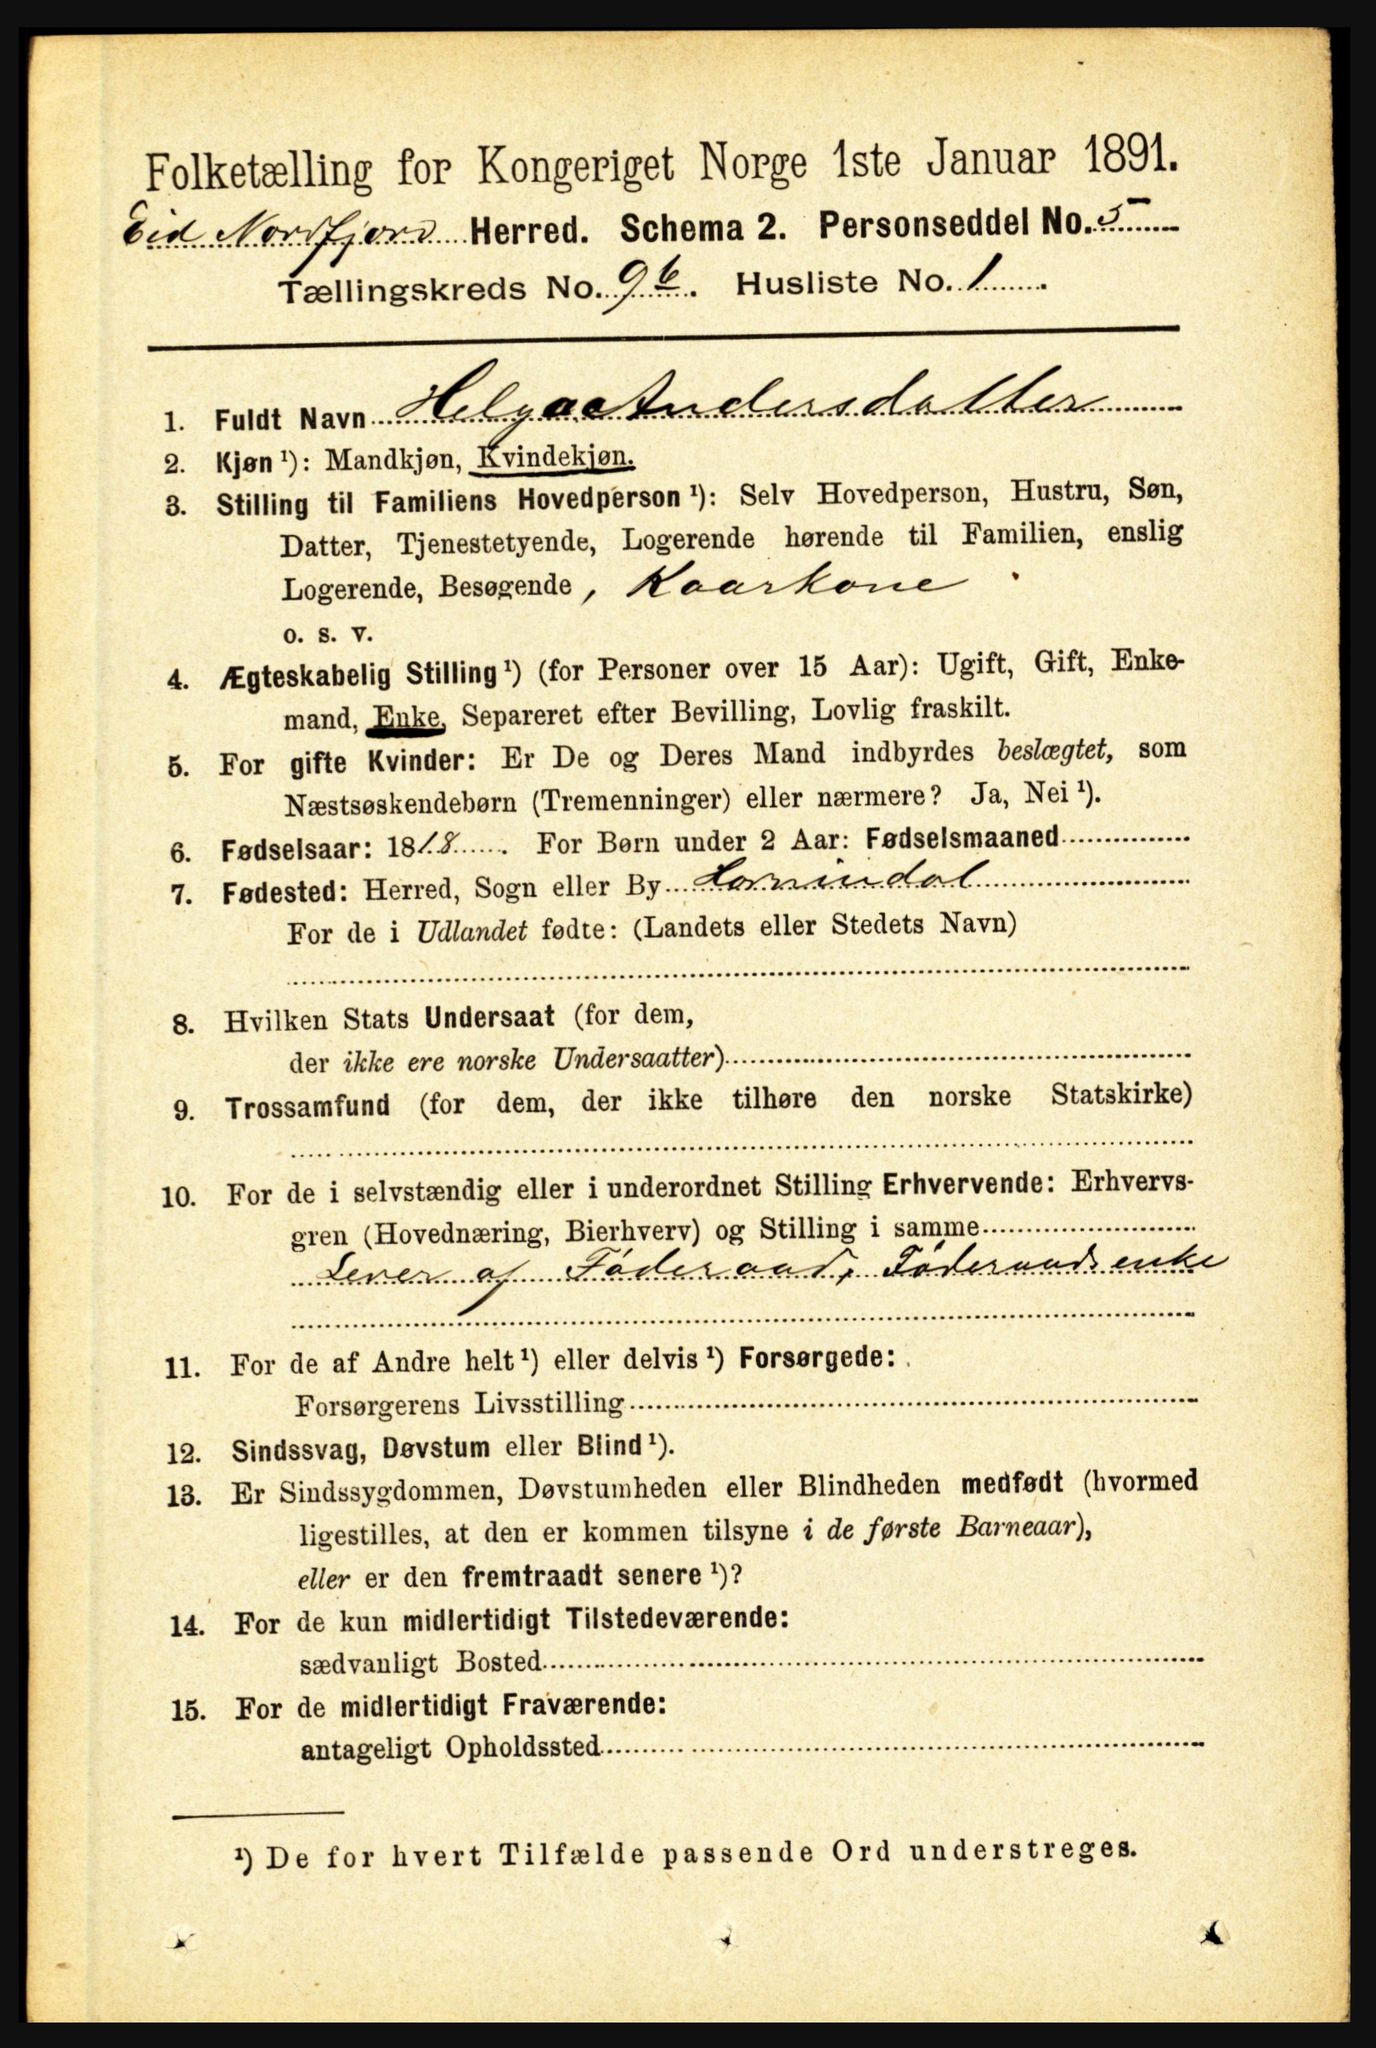 Folketælling for Kongeriget Norge 1ste Januar 1891.
Eid Nordfjord Herred. Schema 2. Personseddel No. 5
Tællingskreds No. 9b. Husliste No. 1.
1. Fuldt Navn Helga Andersdatter
2. Kjøn ¹): Mandkjøn, Kvindekjøn.
3. Stilling til Familiens Hovedperson ¹): Selv Hovedperson, Hustru, Søn,
Datter, Tjenestetyende, Logerende hørende til Familien, enslig
Logerende, Besøgende, Kaarkone
o. s. v.
4. Ægteskabelig Stilling ¹) (for Personer over 15 Aar): Ugift, Gift, Enke-
mand, Enke, Separeret efter Bevilling, Lovlig fraskilt.
5. For gifte Kvinder: Er De og Deres Mand indbyrdes beslægtet, som
Næstsøskendebørn (Tremenninger) eller nærmere? Ja, Nei ¹).
6. Fødselsaar: 1818. For Børn under 2 Aar: Fødselsmaaned
7. Fødested: Herred, Sogn eller By Hornindal
For de i Udlandet fødte: (Landets eller Stedets Navn)
8. Hvilken Stats Undersaat (for dem,
der ikke ere norske Undersaatter)
9. Trossamfund (for dem, der ikke tilhøre den norske Statskirke)
10. For de i selvstændig eller i underordnet Stilling Erhvervende: Erhvervs-
gren (Hovednæring, Bierhverv) og Stilling i samme
Lever af Føderaad, Føderaadsenke
11. For de af Andre helt ¹) eller delvis ¹) Forsørgede:
Forsørgerens Livsstilling
12. Sindssvag, Døvstum eller Blind ¹).
13. Er Sindssygdommen, Døvstumheden eller Blindheden medfødt (hvormed
ligestilles, at den er kommen tilsyne i de første Barneaar),
eller er den fremtraadt senere ¹)?
14. For de kun midlertidigt Tilstedeværende:
sædvanligt Bosted
15. For de midlertidigt Fraværende:
antageligt Opholdssted
¹) De for hvert Tilfælde passende Ord understreges.